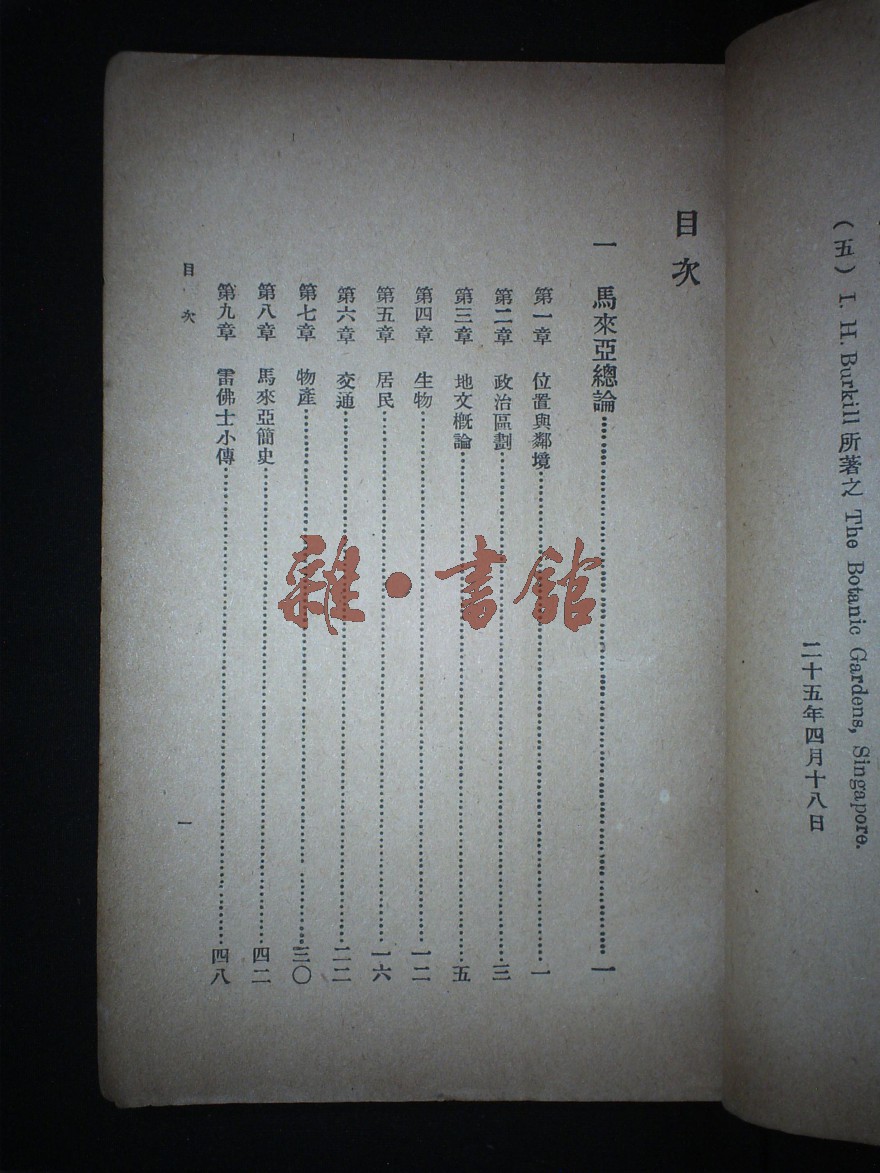 （五）I. H. Burkill 所著之 The Botanic Gardens, Singapore.
二十五年四月十八日
目次
一　馬來亞總論……一
第一章　位置與鄰境……一
第二章　政治區劃……三
第三章　地文概論……五
第四章　生物……一二
第五章　居民……一六
第六章　交通……二二
第七章　物產……三〇
第八章　馬來亞簡史……四二
第九章　雷佛士小傳……四八
目次　一
雜·書館